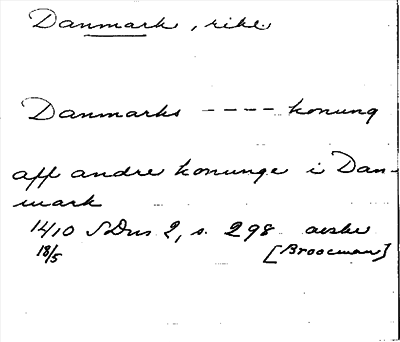 Danmark, rike
Danmarks ---- konung
aff andre konunge i Dan-
mark
1410 SDns 2, s. 298 avskr
18/5 [Broocman]